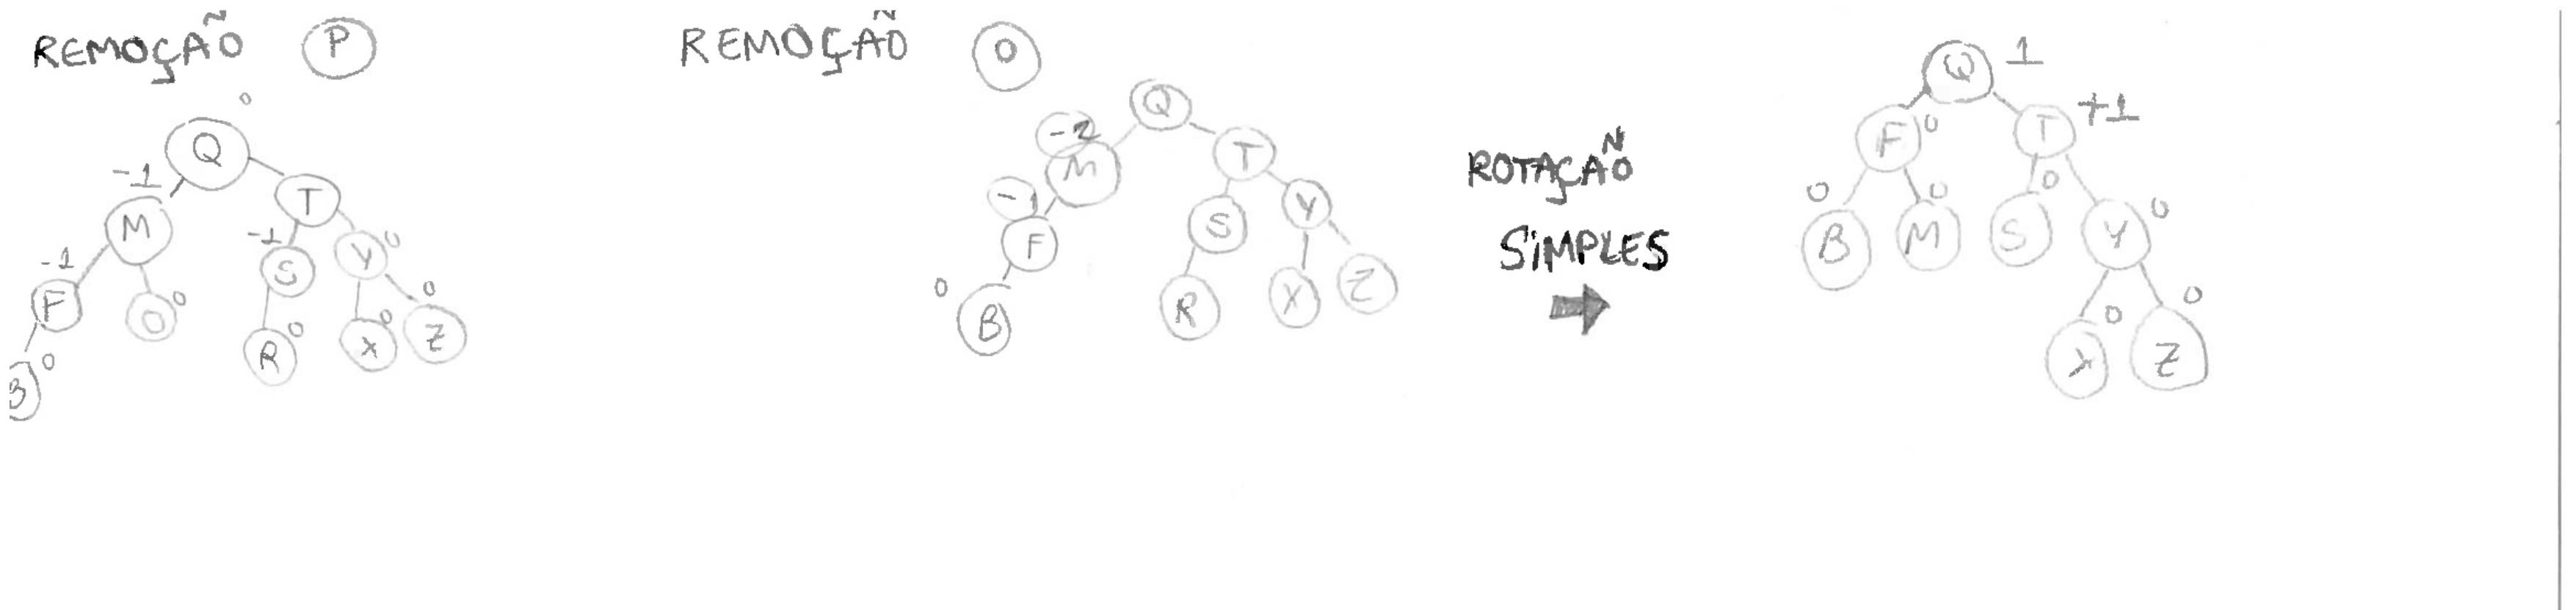 REMOÇÃO P
0
Q
-1
M T
-1 -1 0
F O 0 S Y
0 0 0 0
B R X Z
REMOÇÃO O
Q
-2
M T
-1
F S Y
0
B R X Z
ROTAÇÃO
SIMPLES
Q 1
F 0 T +1
0 0 0 0
B M S Y
0 0
X Z